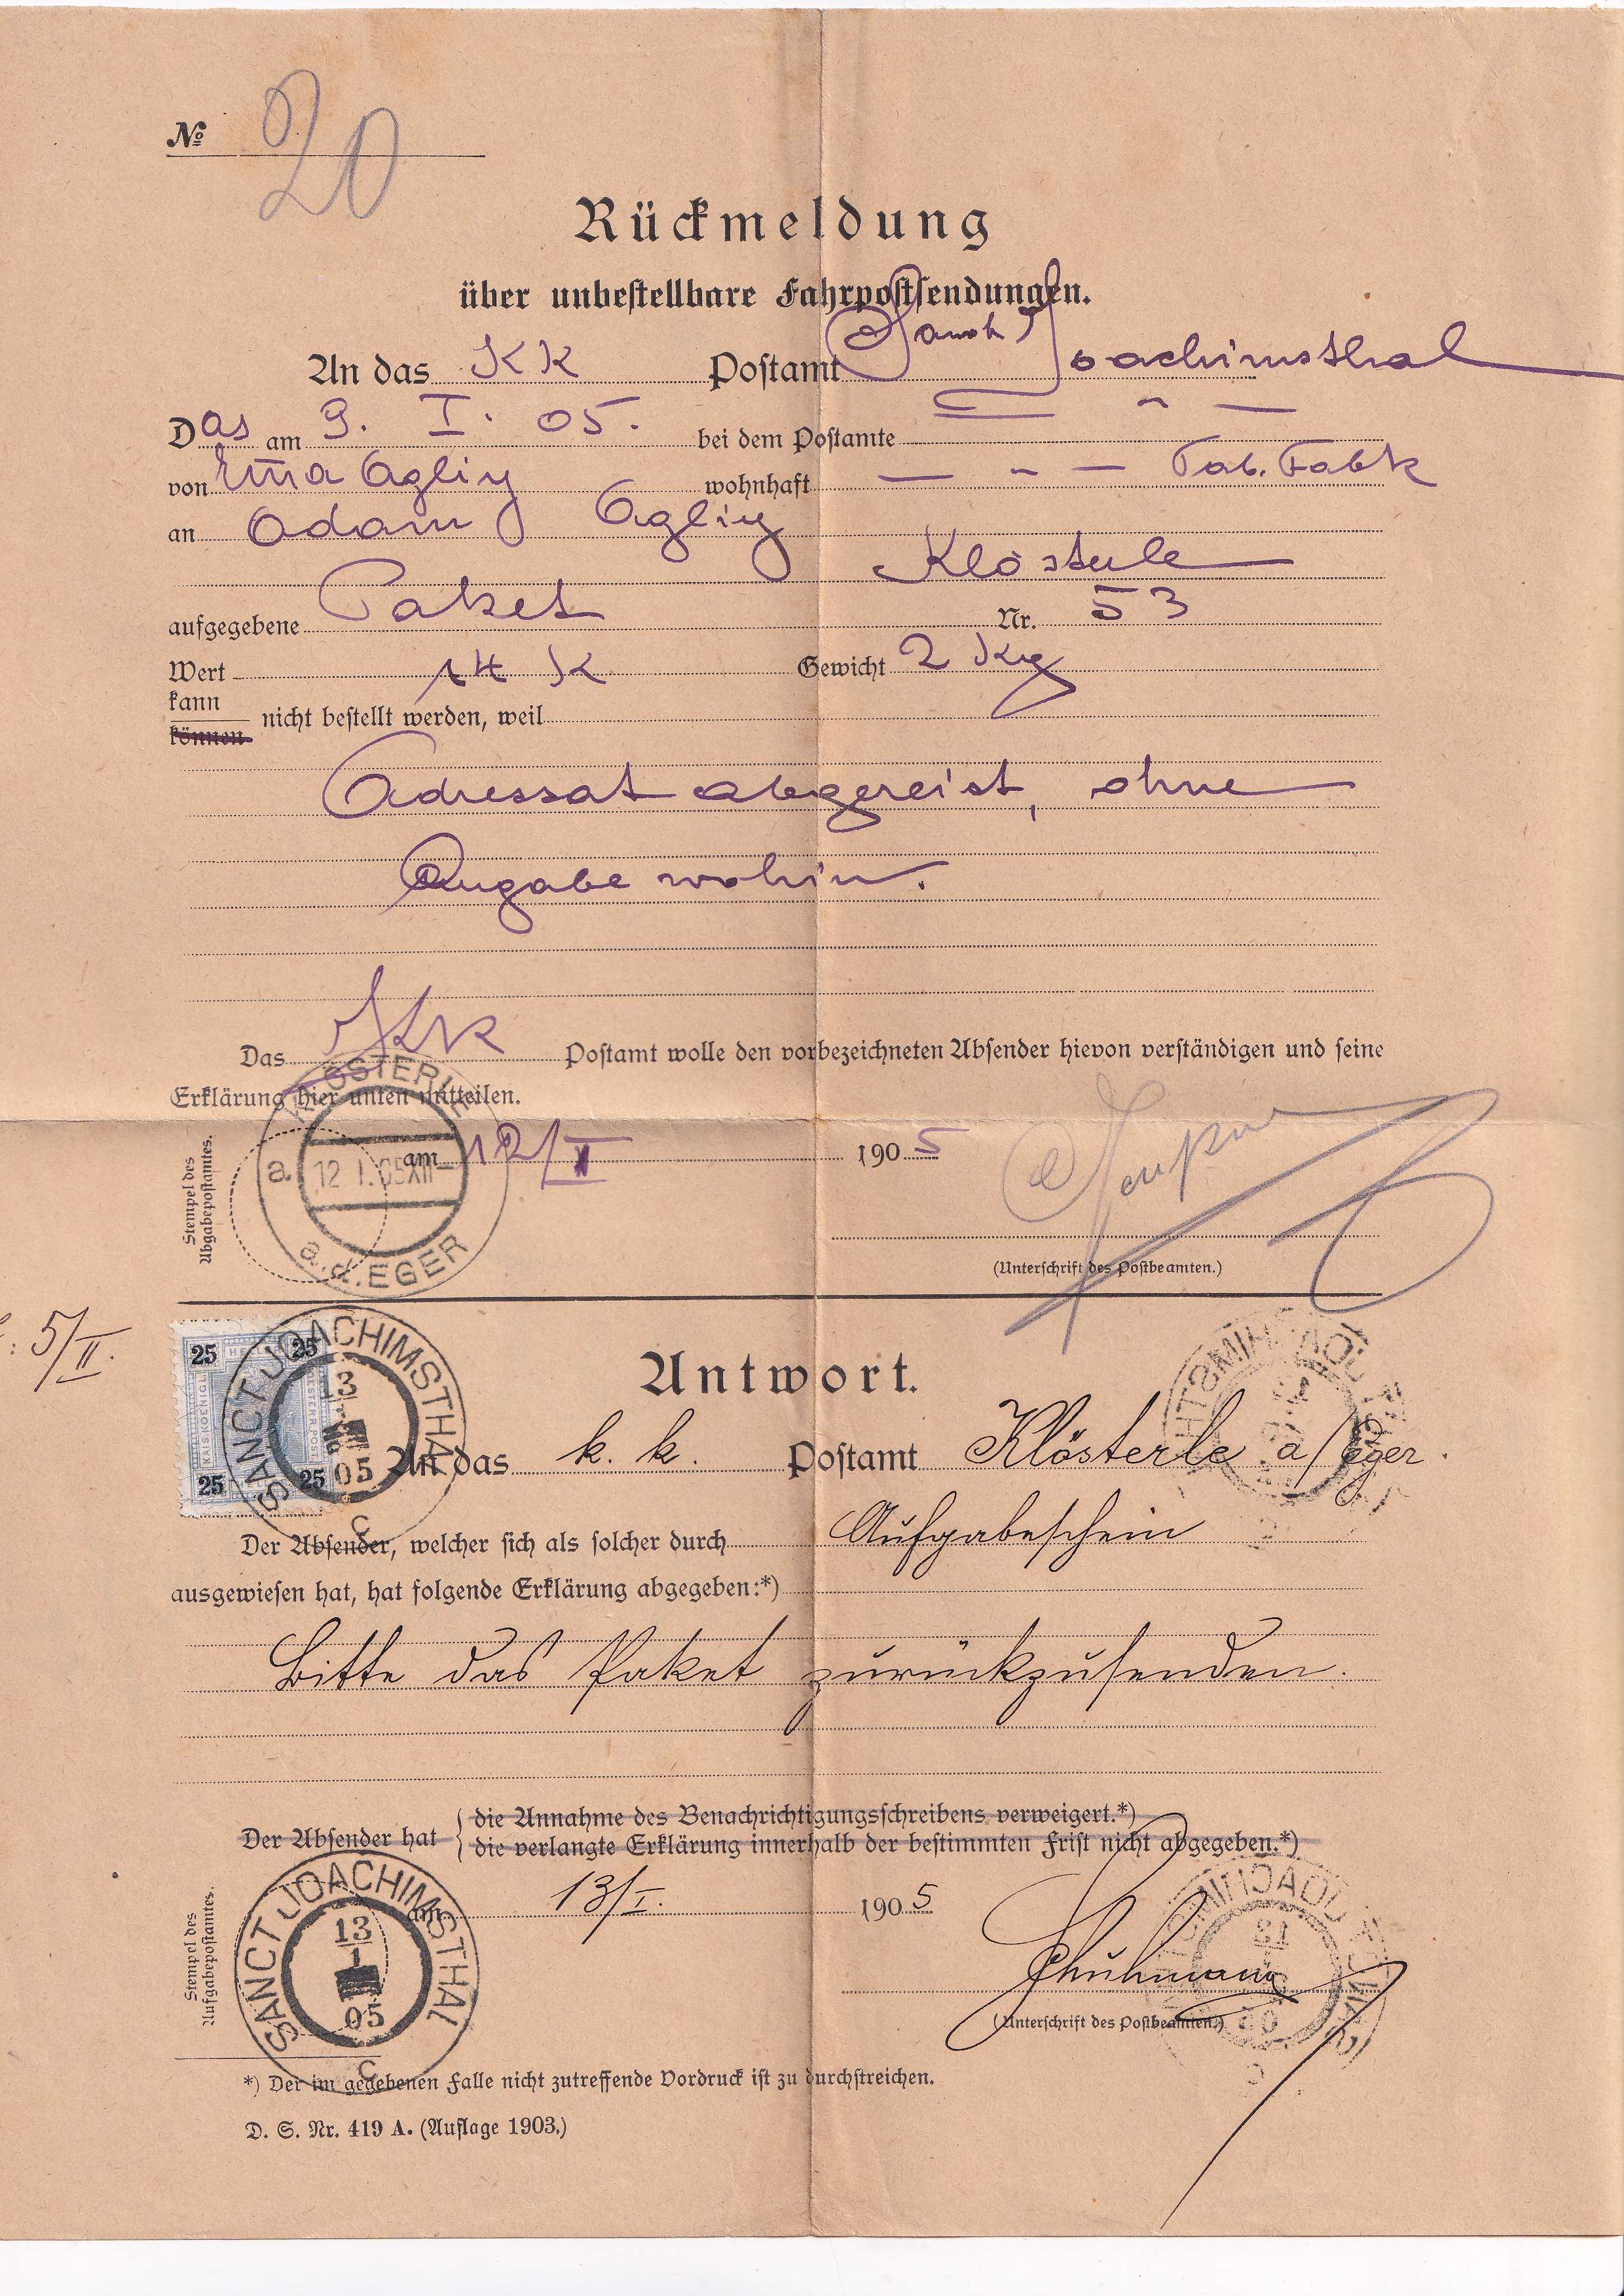 № 20
Rückmeldung
über unbestellbare Fahrpostsendungen.
An das KK Postamt Sanct Joachimsthal
Das am 9. I. 05. bei dem Postamte — " —
von wohnhaft — " — Tab. Fabk
an Adam
Klösterle
aufgegebene Paket Nr. 53
Wert 14 K Gewicht 2 Kg
kann
können nicht bestellt werden, weil
Adressat abgereist, ohne
Angabe wohin.
Das KK Postamt wolle den vorbezeichneten Absender hievon verständigen und seine
Erklärung hier unten mitteilen.
KLÖSTERLE
a. 12 I. 05 XII
a.d. EGER
Stempel des
Abgabepostamtes.
am 12/I 1905
(Unterschrift des Postbeamten.)
5/II.
25 25
KAIS. KOENIGL. OESTERR. POST
25 25
SANCT JOACHIMSTHAL
13
05
c
Antwort.
An das k. k. Postamt Klösterle a/Eger.
Der Absender, welcher sich als solcher durch Aufgabeschein
ausgewiesen hat, hat folgende Erklärung abgegeben:*)
Bitte das Paket zurückzusenden.
Der Absender hat die Annahme des Benachrichtigungsschreibens verweigert.*)
die verlangte Erklärung innerhalb der bestimmten Frist nicht abgegeben.*)
Stempel des
Aufgabepostamtes.
SANCT JOACHIMSTHAL
13
1
05
c
am 13/I. 1905
(Unterschrift des Postbeamten.)
*) Der im gegebenen Falle nicht zutreffende Vordruck ist zu durchstreichen.
D. S. Nr. 419 A. (Auflage 1903.)